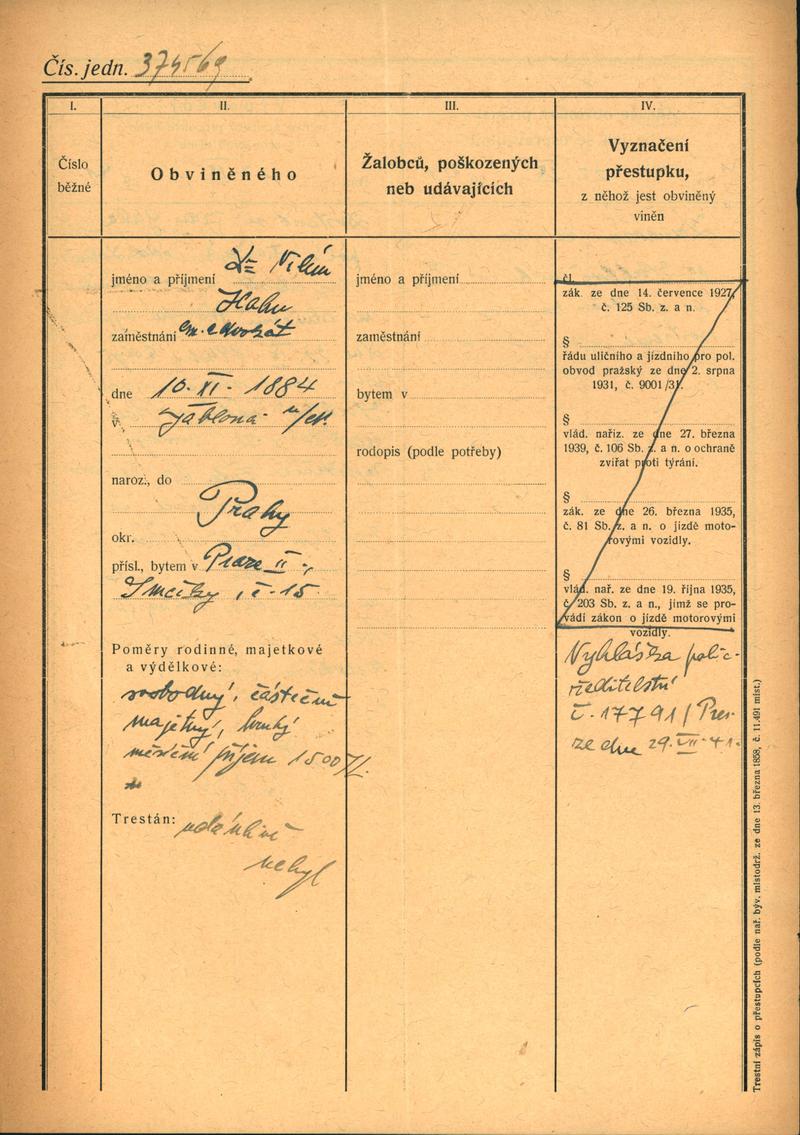 Čís. jedn. 374569
I.
Číslo
běžné
II.
Obviněného
III.
Žalobců, poškozených
neb udávajících
IV.
Vyznačení
přestupku,
z něhož jest obviněný
viněn
jméno a příjmení Dr Vilém
Hahn
zaměstnání em. advokát
dne 10. XI. 1884
v Jablona n/
naroz., do
Prahy
okr.
přísl., bytem v Praze II -,
Smečky, č. 15
Poměry rodinné, majetkové
a výdělkové:
svobodný, částečně
majetný, hrubý
měsíční příjem 1500 K.
Trestán: udánlivě
nebyl
jméno a příjmení
zaměstnání
bytem v
rodopis (podle potřeby)
čl.
zák. ze dne 14. července 1927,
č. 125 Sb. z. a n.
§
řádu uličního a jízdního pro pol.
obvod pražský ze dne 2. srpna
1931, č. 9001/31.
§
vlád. naříz. ze dne 27. března
1939, č. 106 Sb. z. a n. o ochraně
zvířat proti týrání.
§
zák. ze dne 26. března 1935,
č. 81 Sb. z. a n. o jízdě moto-
rovými vozidly.
§
vlád. nař. ze dne 19. října 1935,
č. 203 Sb. z. a n., jímž se pro-
vádí zákon o jízdě motorovými
vozidly.
Vyhláška polic-
ředitelství
č. 17791/Pres.
ze dne 29. VII. 41.
Trestní zápis o přestupcích (podle nař. býv. místodrž. ze dne 13. března 1858, č. 11.491 míst.)